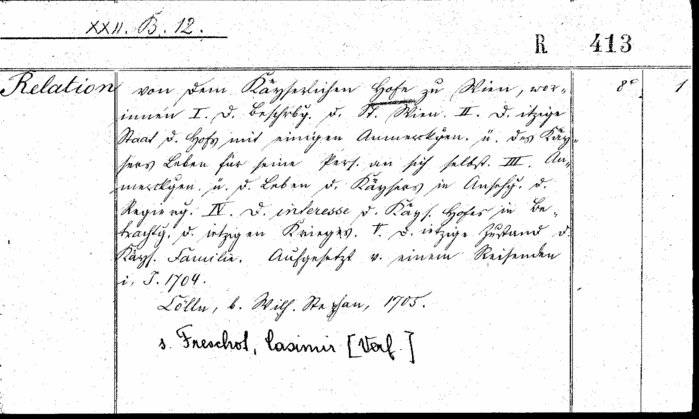 XXII. B. 12.
R 413
Relation von dem Käyserlichen Hofe zu Wien, wor- 8° 1
innen I. D. Beschrbg. d. St. Wien. II. D. itzige
Staat d. Hofs mit einigen Anmerckgen. ü. des Käy-
sers Leben für seine Pers. an sich selbst. III. An-
merckgen. ü. d. Leben d. Käysers in Ansehg. d.
Regierg. IV. D. interesse d. Käys. Hofes in Be-
trachtg. d. itzigen Krieges. V. D. itzige Zustand d.
Käys. Familie. Aufgesetzt v. einem Reisenden
i. J. 1704.
Cölln, b. Wilh. Stephan, 1705.
s. Freschot, Casimir [Verf.]